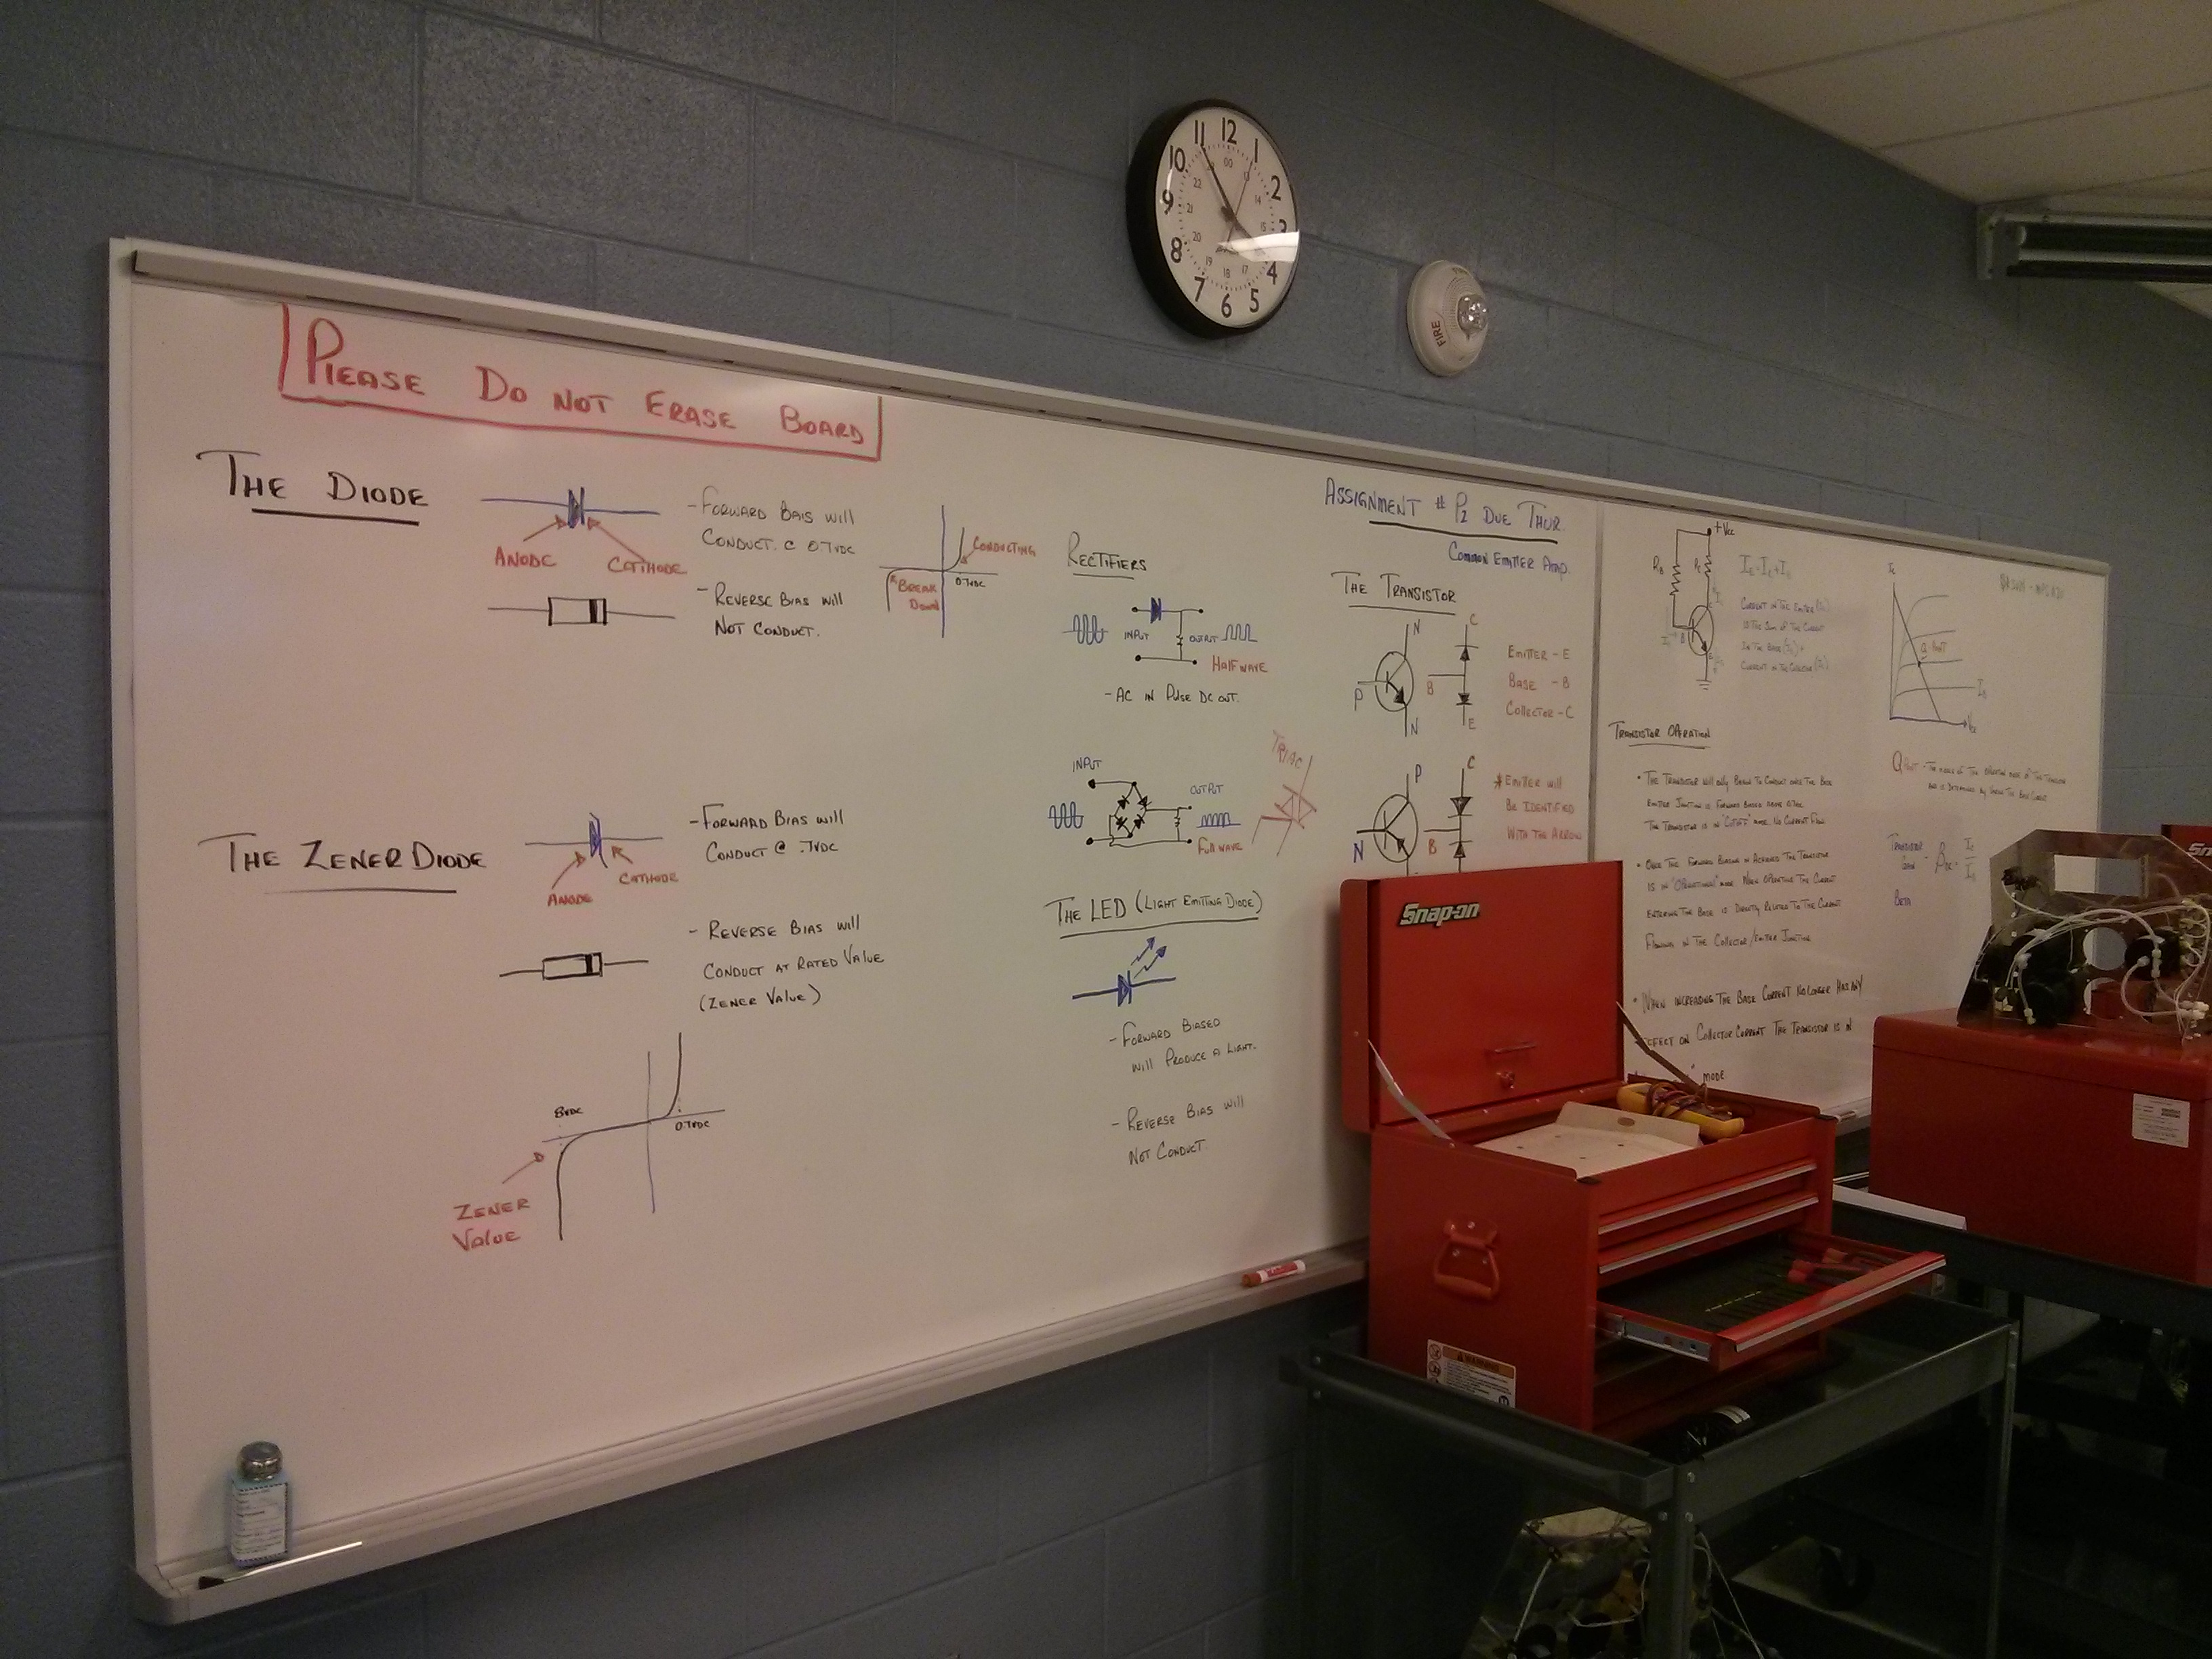 PLEASE DO NOT ERASE BOARD
THE DIODE
ANODE
CATHODE
- FORWARD BAIS WILL
CONDUCT. @ 0.7VDC
- REVERSE BIAS WILL
NOT CONDUCT.
CONDUCTING
0.7VDC
BREAK
DOWN
THE ZENER DIODE
ANODE
CATHODE
- FORWARD BIAS WILL
CONDUCT @ .7VDC
- REVERSE BIAS WILL
CONDUCT AT RATED VALUE
(ZENER VALUE)
8VDC
0.7VDC
ZENER
VALUE
RECTIFIERS
INPUT
OUTPUT
HALF WAVE
- AC IN PULSE DC OUT.
INPUT
OUTPUT
FULL WAVE
TRIAC
THE LED (LIGHT EMITTING DIODE)
- FORWARD BIASED
WILL PRODUCE A LIGHT.
- REVERSE BIAS WILL
NOT CONDUCT
ASSIGNMENT # P2 DUE THUR.
COMMON EMITTER AMP.
THE TRANSISTOR
N
P
N
C
B
E
EMITTER - E
BASE - B
COLLECTOR - C
P
N
C
B
* EMITTER WILL
BE IDENTIFIED
WITH THE ARROW
+Vcc
RB
Rc
B
CURRENT IN THE EMITTER (IE)
IS THE SUM OF THE CURRENT
IN THE BASE (IB) +
CURRENT IN THE COLLECTOR (IC)
Ic
Q POINT
IB
Vcc
TRANSISTOR OPERATION
• THE TRANSISTOR WILL ONLY BEGIN TO CONDUCT ONCE THE BASE
EMITTER JUNCTION IS FORWARD BIASED ABOVE 0.7VDC
THE TRANSISTOR IS IN "CUTOFF" MODE. NO CURRENT FLOW
• ONCE THE FORWARD BIASING IS ACHIEVED THE TRANSISTOR
IS IN "OPERATIONAL" MODE. WHEN OPERATING THE CURRENT
ENTERING THE BASE IS DIRECTLY RELATED TO THE CURRENT
FLOWING IN THE COLLECTOR/EMITTER JUNCTION
• WHEN INCREASING THE BASE CURRENT NO LONGER HAS ANY
EFFECT ON COLLECTOR CURRENT THE TRANSISTOR IS IN
MODE
Q POINT - THE MIDDLE OF THE OPERATING RANGE OF THE TRANSISTOR
AND IS DETERMINED BY THE BASE CURRENT
TRANSISTOR
GAIN
BETA
12
1
2
3
4
5
6
7
8
9
10
11
00
14
15
17
18
19
20
21
22
FIRE
Snap-on
WARNING
Sn